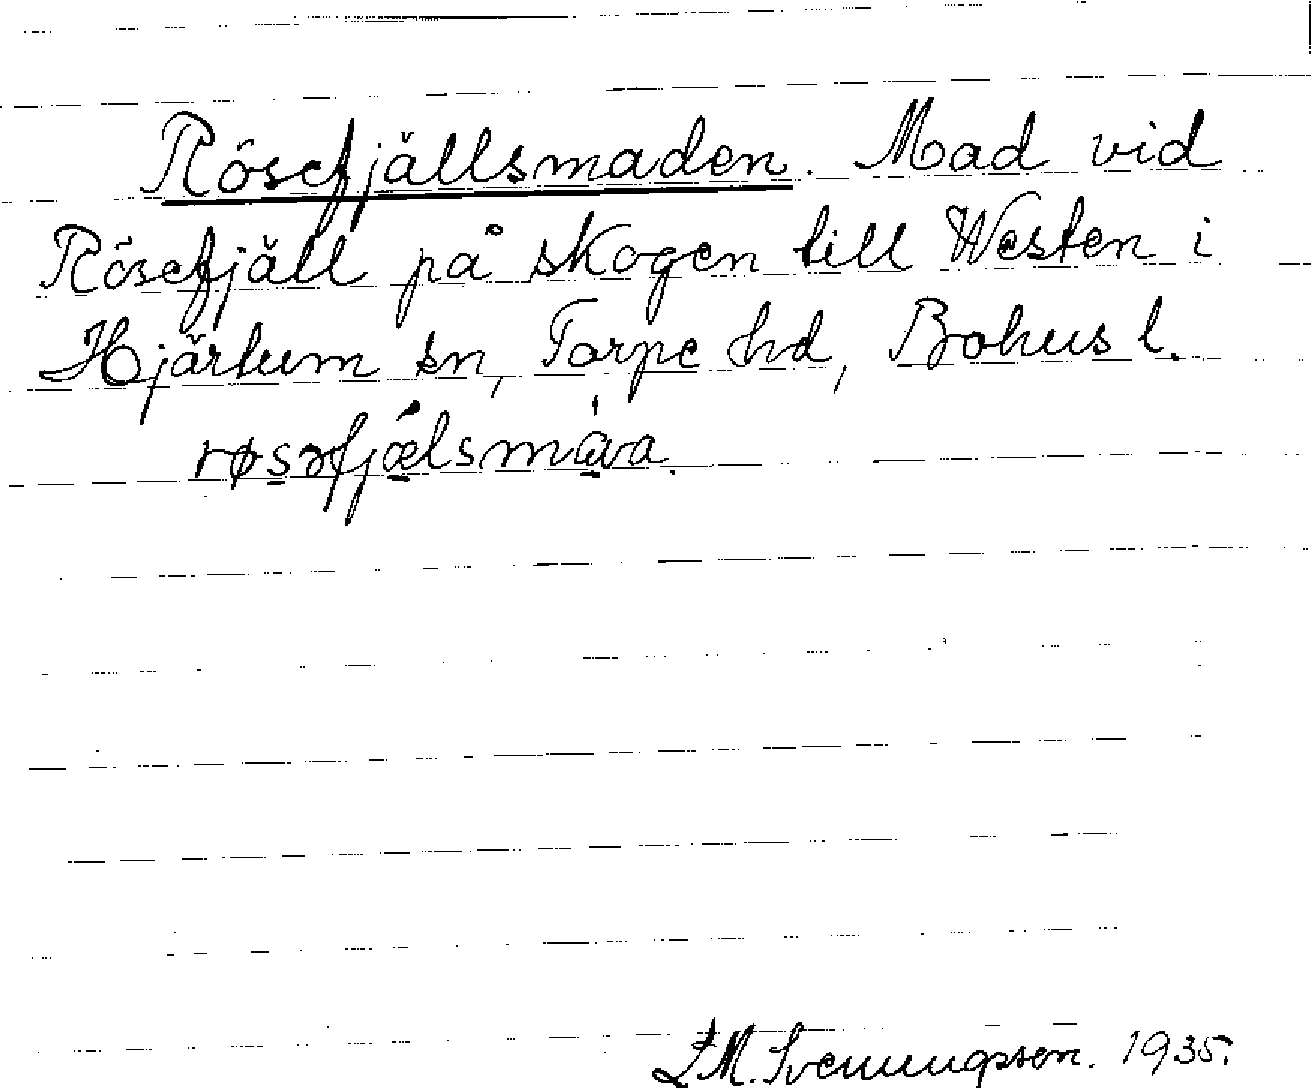 Rösefjällsmaden. Mad vid
Rösefjäll på skogen till Westen i
Hjärtum sn, Torpe hd, Bohus l.
røsəfjælsmava.
L.M. Svenungsson. 1935.